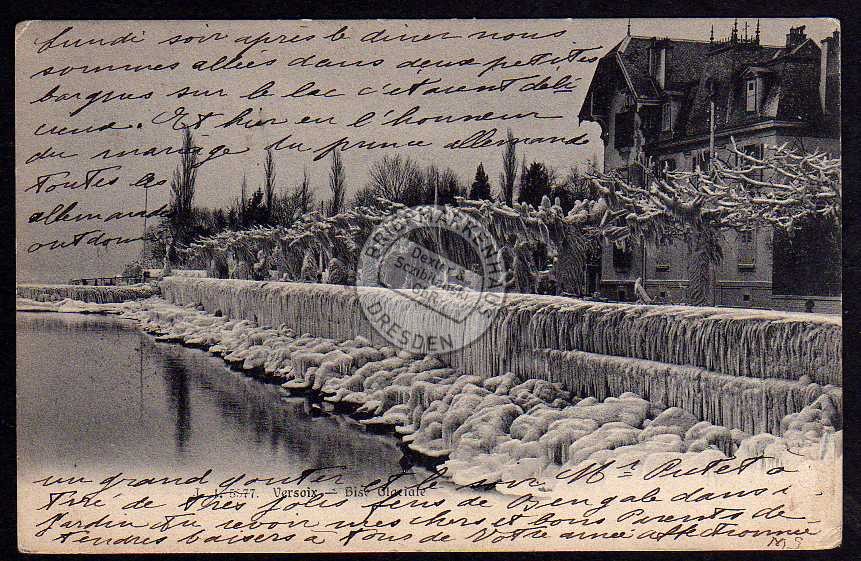 Lundi soir après le diner nous
sommes allées dans deux petites
barques sur le lac c'etaient déli
cieux. Et hier en l'honneur
du mariage du prince allemand
toutes les
allemands
ont donn
BRIEFMARKENHAUS
Dexter &
DRESDEN
J. J. 5577. Versoix. — Bise Glaciale
un grand gouter et le soir Mr Putet a
tiré de très jolis feux de Bengale dans
jardin Au revoir mes chers et bons Parents de
tendres baisers à tous de Votre amee affectionnée
M G